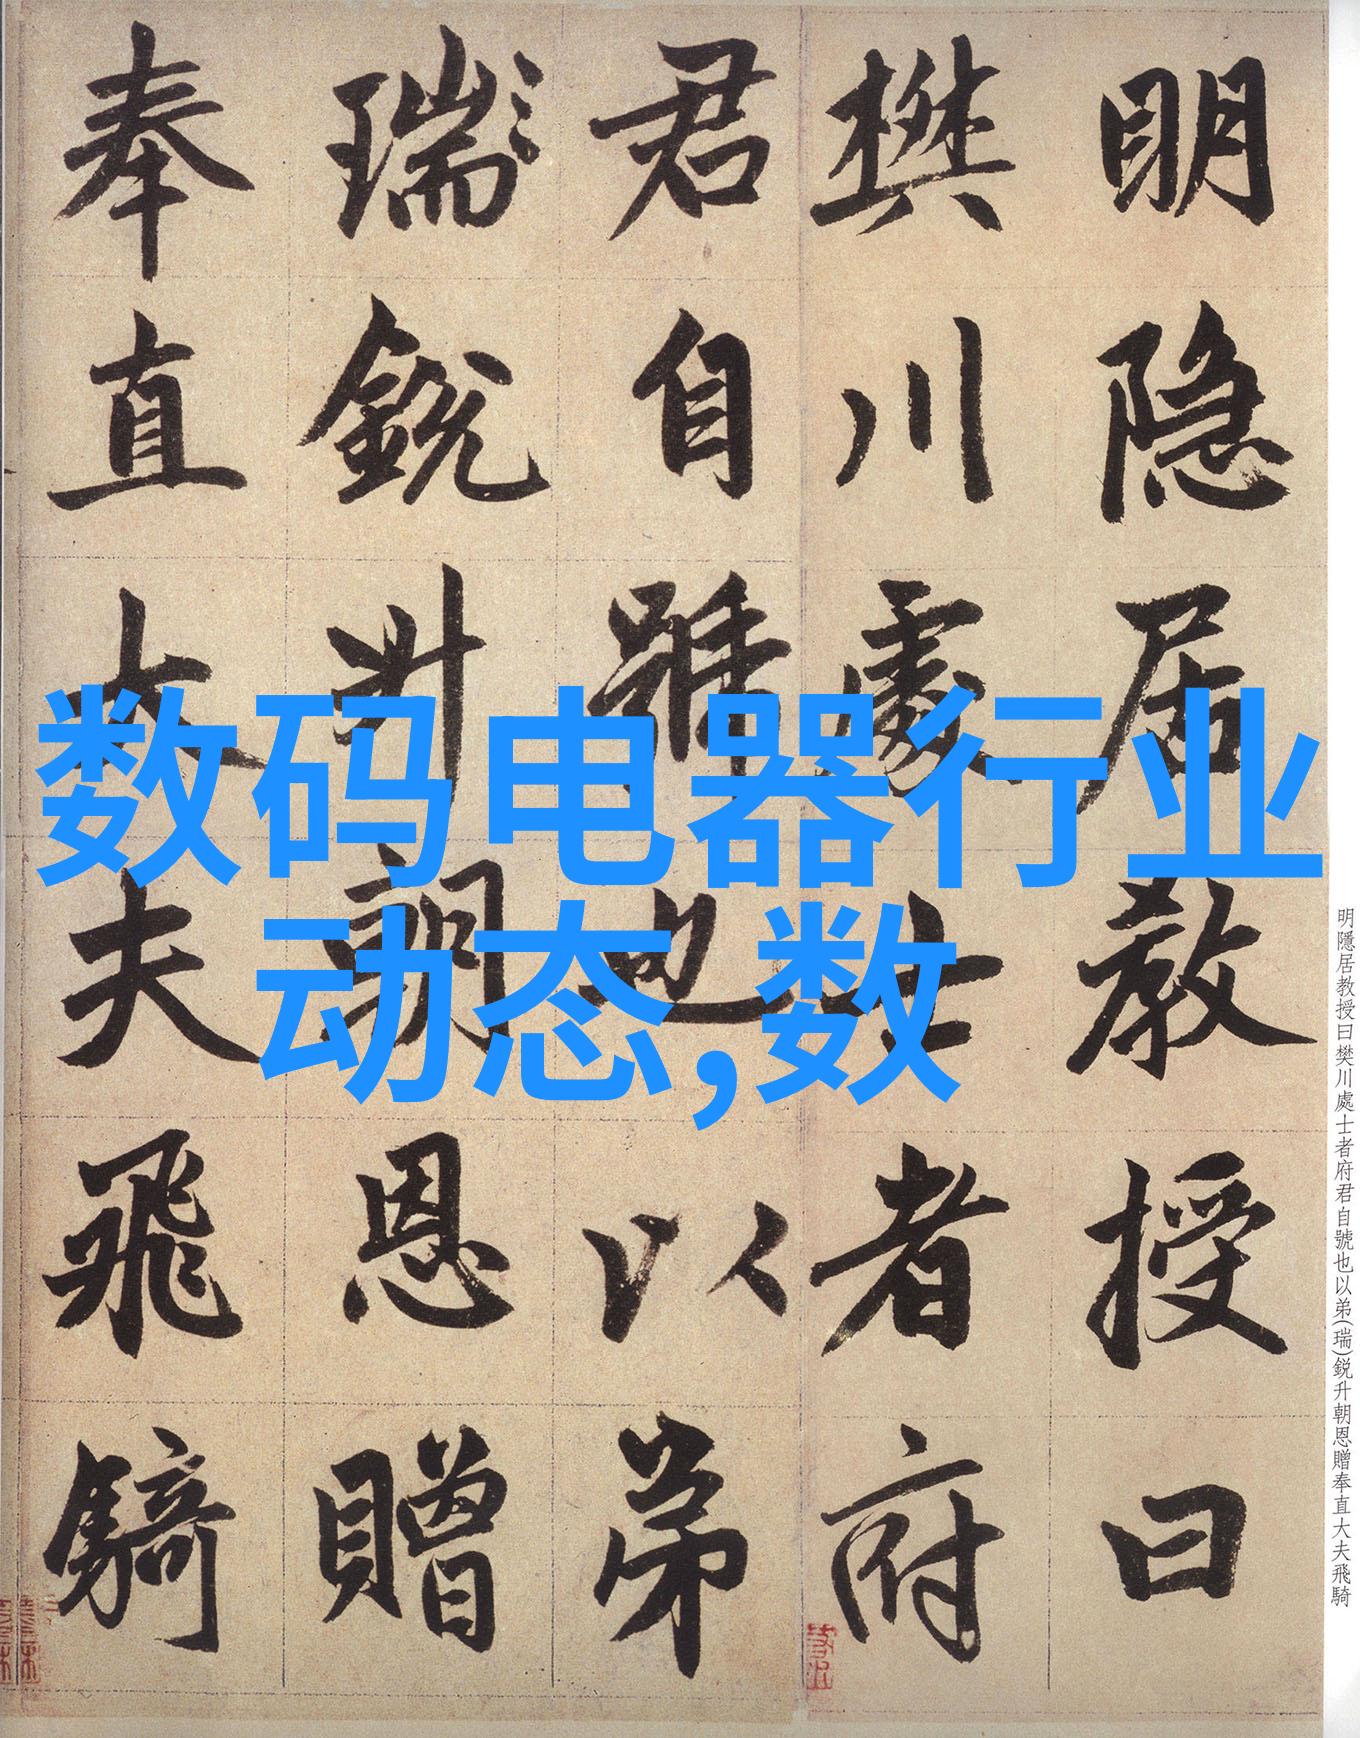 明隐居教授曰
樊川處士者府
君自號也以弟
瑞銳升朝恩贈
奉直大夫飛騎
数码电器行业
动态,数
明隱居教授曰樊川處士者府君自號也以弟(瑞)鋭升朝恩贈奉直大夫飛騎